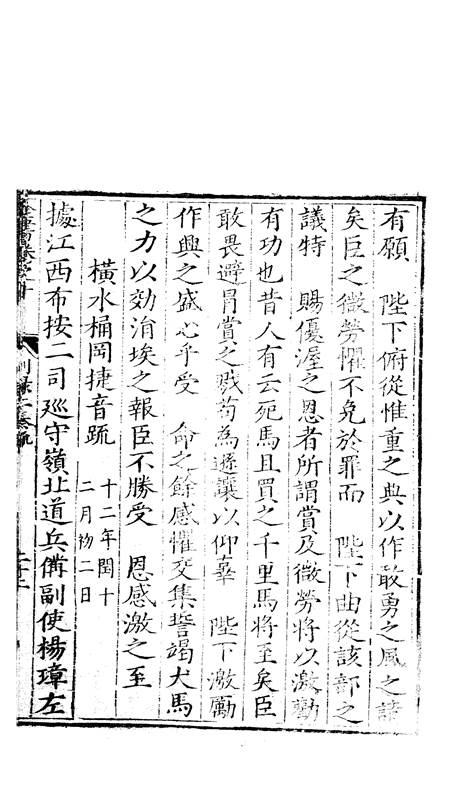 有願 陛下俯從惟重之典以作敢勇之風之諸
矣臣之微勞懼不免於罪而 陛下曲從該部之
議特 賜優渥之恩者所謂賞及微勞將以激勸
有功也昔人有云死馬且買之千里馬將至矣臣
敢畏避冒賞之戮苟為遜讓以仰辜 陛下激勵
作興之盛心乎受 命之餘感懼交集誓竭犬馬
之力以効涓埃之報臣不勝受 恩感激之至
橫水桶岡捷音疏 十二年閏十
二月初二日
據江西布按二司廵守嶺北道兵備副使楊璋左
別錄 奏疏